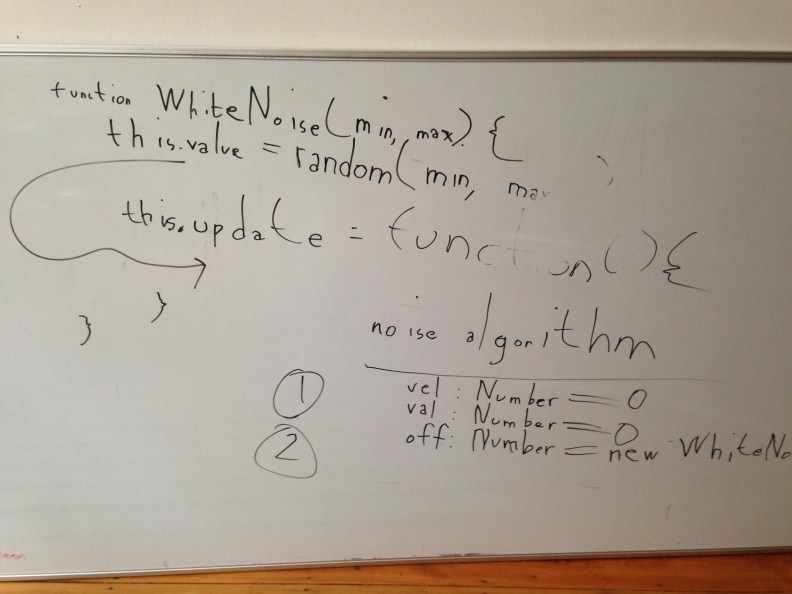 function WhiteNoise(min, max) {
this.value = random(min, max )
this.update = function(){
}
}
noise algorithm
1
vel : Number = 0
val : Number = 0
2
off: Number = new WhiteNo